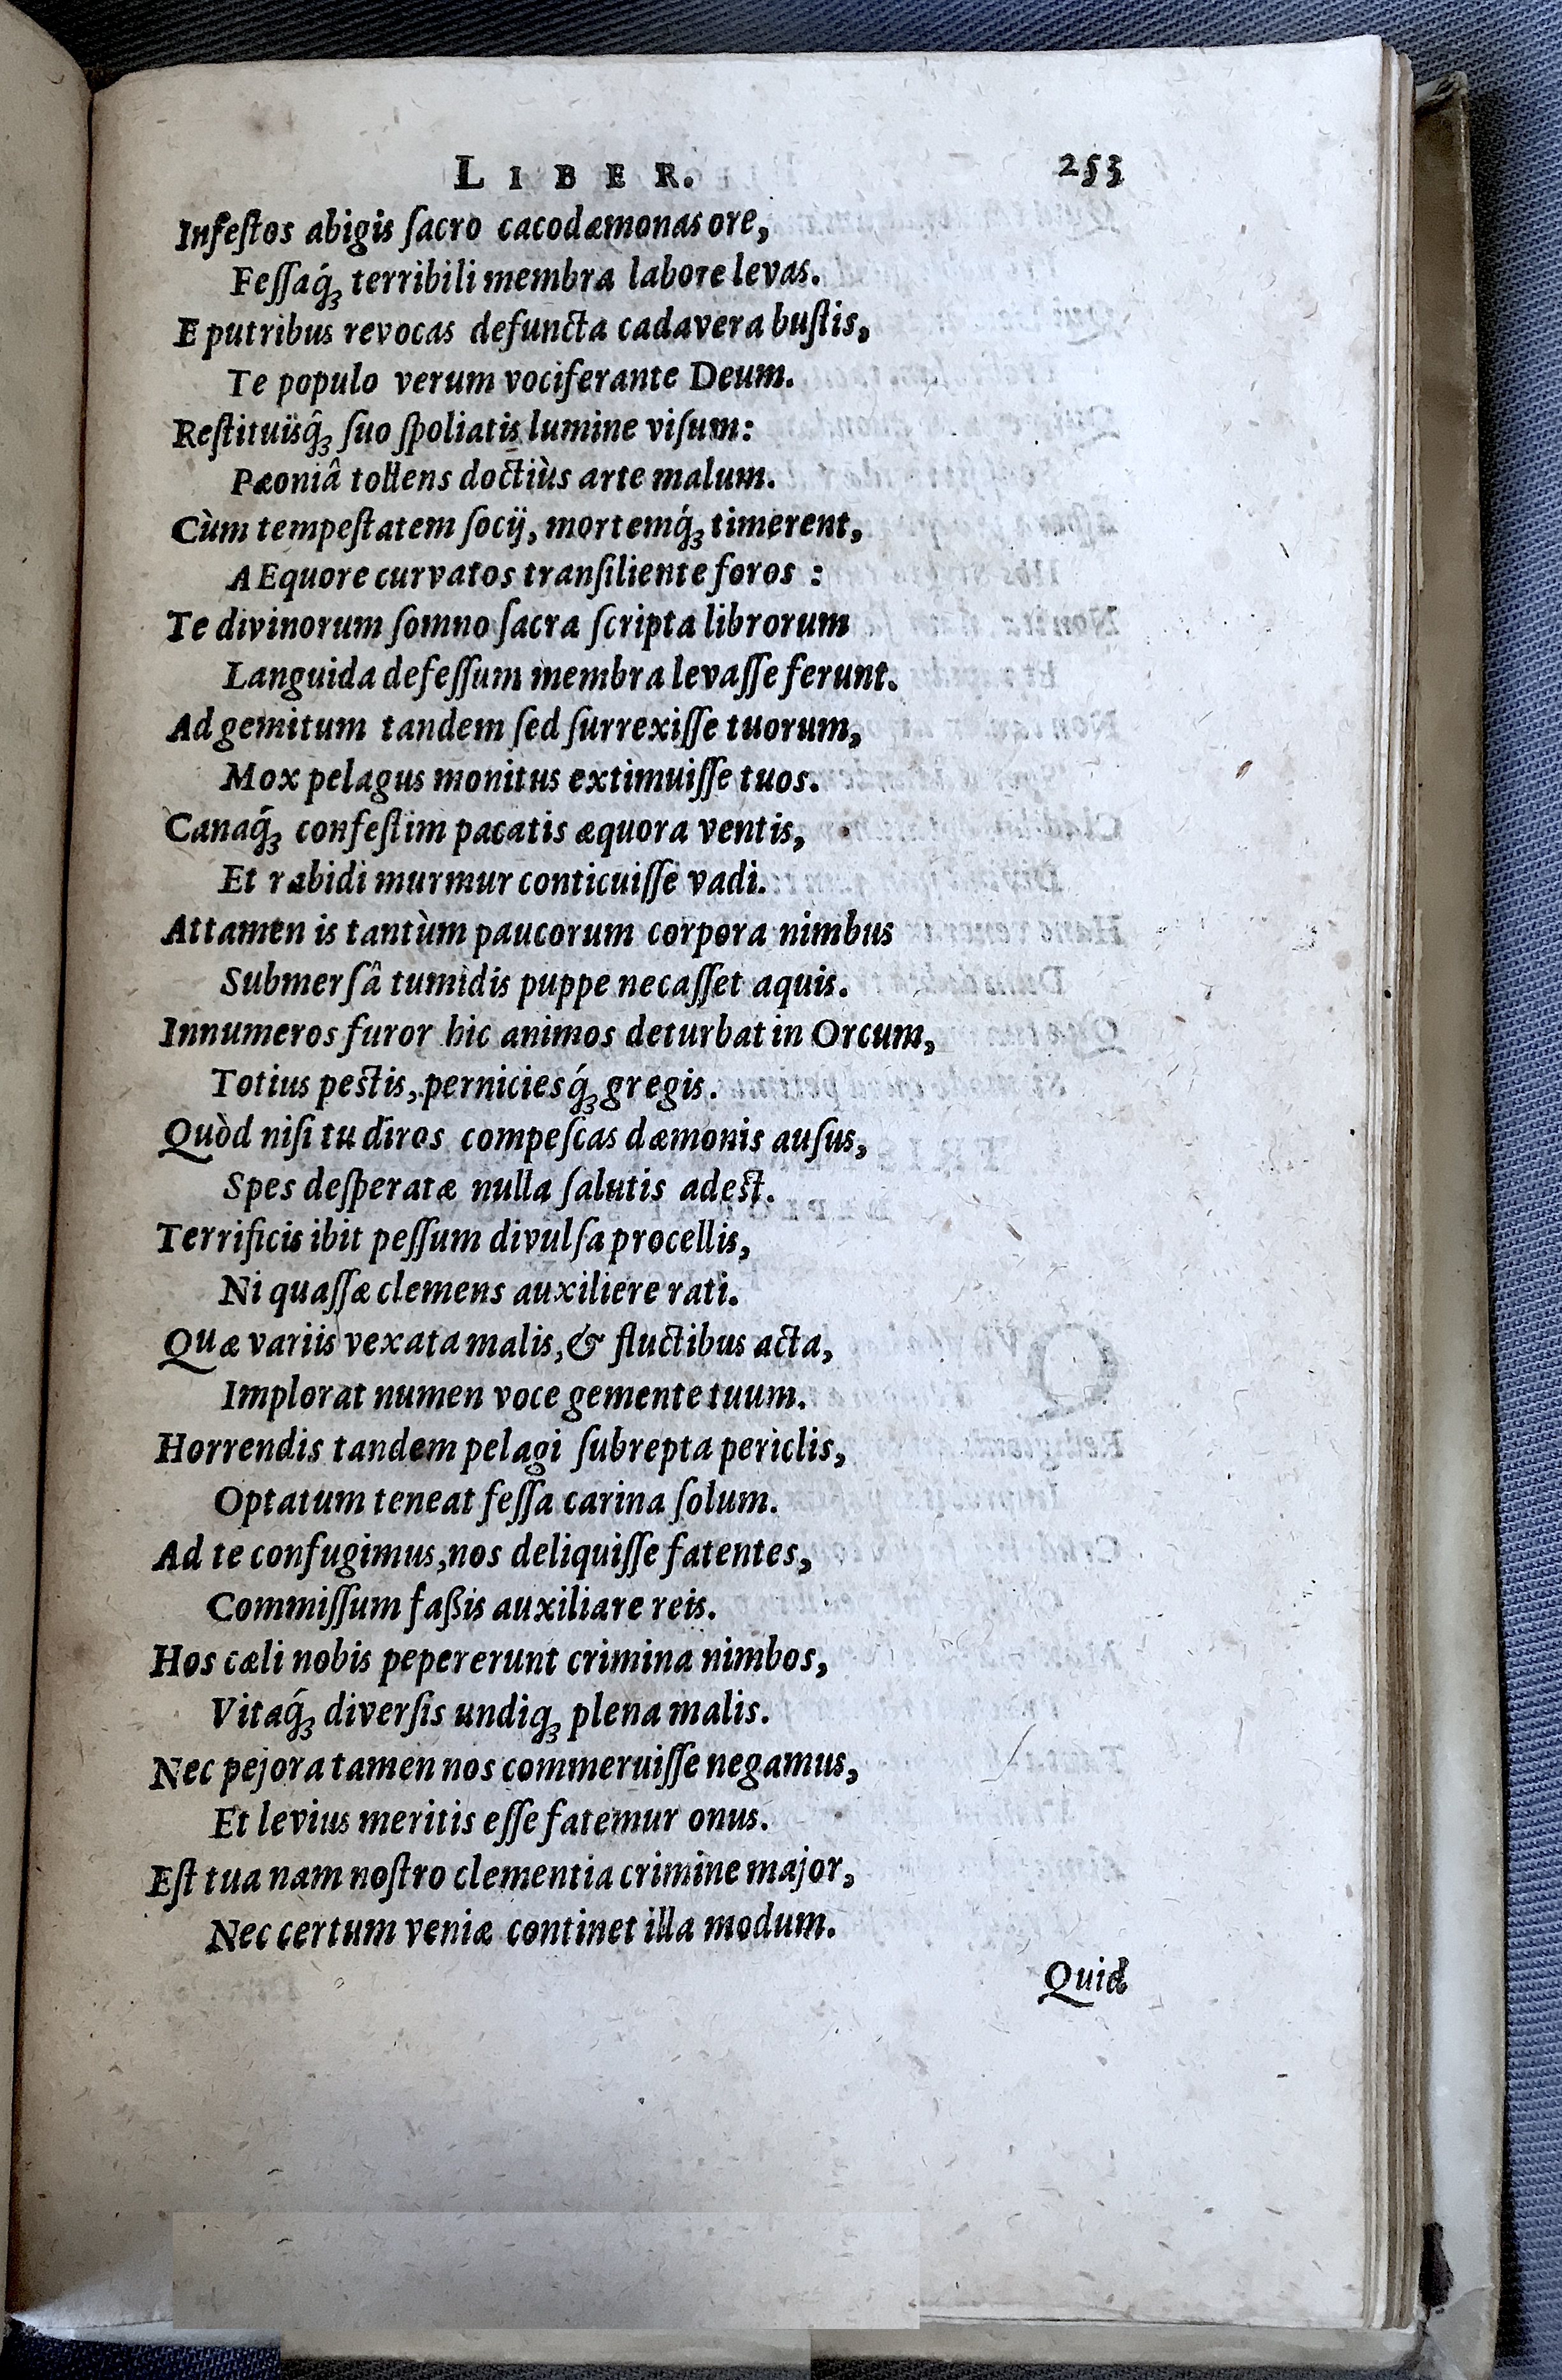 LIBER. 253
Infeſtos abigis ſacro cacodæmonas ore,
Feſſaq́ꝫ terribili membra labore levas.
E putribus revocas defuncta cadavera buſtis,
Te populo verum vociferante Deum.
Reſtituïsq̂ꝫ ſuo ſpoliatis lumine viſum:
Pæoniâ tollens doctiùs arte malum.
Cùm tempeſtatem ſocij, mortemq́ꝫ timerent,
AEquore curvatos tranſiliente foros :
Te divinorum ſomno ſacra ſcripta librorum
Languida defeſſum membra levaſſe ferunt.
Ad gemitum tandem ſed ſurrexiſſe tuorum,
Mox pelagus monitus extimuiſſe tuos.
Canaq́ꝫ confeſtim pacatis æquora ventis,
Et rabidi murmur conticuiſſe vadi.
Attamen is tantùm paucorum corpora nimbus
Submerſâ tumidis puppe necaſſet aquis.
Innumeros furor hic animos deturbat in Orcum,
Totius peſtis, perniciesq́ꝫ gregis.
Quòd niſi tu diros compeſcas dæmonis auſus,
Spes deſperatæ nulla ſalutis adeſt.
Terrificis ibit peſſum divulſa procellis,
Ni quaſſæ clemens auxiliere rati.
Quæ variis vexata malis, & fluctibus acta,
Implorat numen voce gemente tuum.
Horrendis tandem pelagi ſubrepta periclis,
Optatum teneat feſſa carina ſolum.
Ad te confugimus, nos deliquiſſe fatentes,
Commiſſum faßis auxiliare reis.
Hos cæli nobis pepererunt crimina nimbos,
Vitaq́ꝫ diverſis undiqꝫ plena malis.
Nec pejora tamen nos commeruiſſe negamus,
Et levius meritis eſſe fatemur onus.
Eſt tua nam noſtro clementia crimine major,
Nec certum veniæ continet illa modum.
Quid